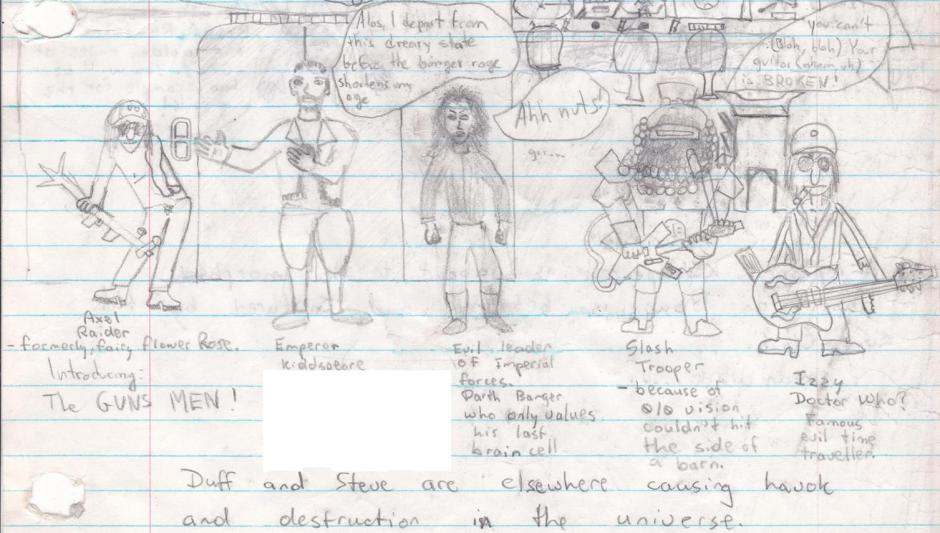 Alas, I depart from
this dreary state
before the banger rage
shortens my
age
Ahh nuts!
grr...
you can't
(Blah, blah) Your
guitar (ahem, uh)
is BROKEN!
Axel
Raider
- formerly, fairy flower Rose.
Introducing:
The GUNS MEN!
Emperor
Evil leader
of Imperial
forces.
Darth Banger
who only values
his last
brain cell
Slash
Trooper
- because of
0/0 vision
couldn't hit
the side of
a barn.
Izzy
Doctor Who?
Famous
evil time
traveller.
Duff and Steve are elsewhere causing havok
and destruction in the universe.